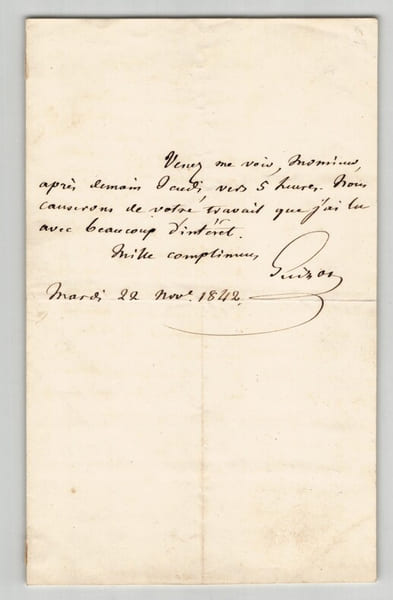 Venez me voir, Monsieur,
après demain Jeudi vers 5 heures. Nous
causerons de votre travail que j'ai lu
avec beaucoup d'intérêt.
Mille complimens
Guizot
Mardi 22 Nov.e 1842.